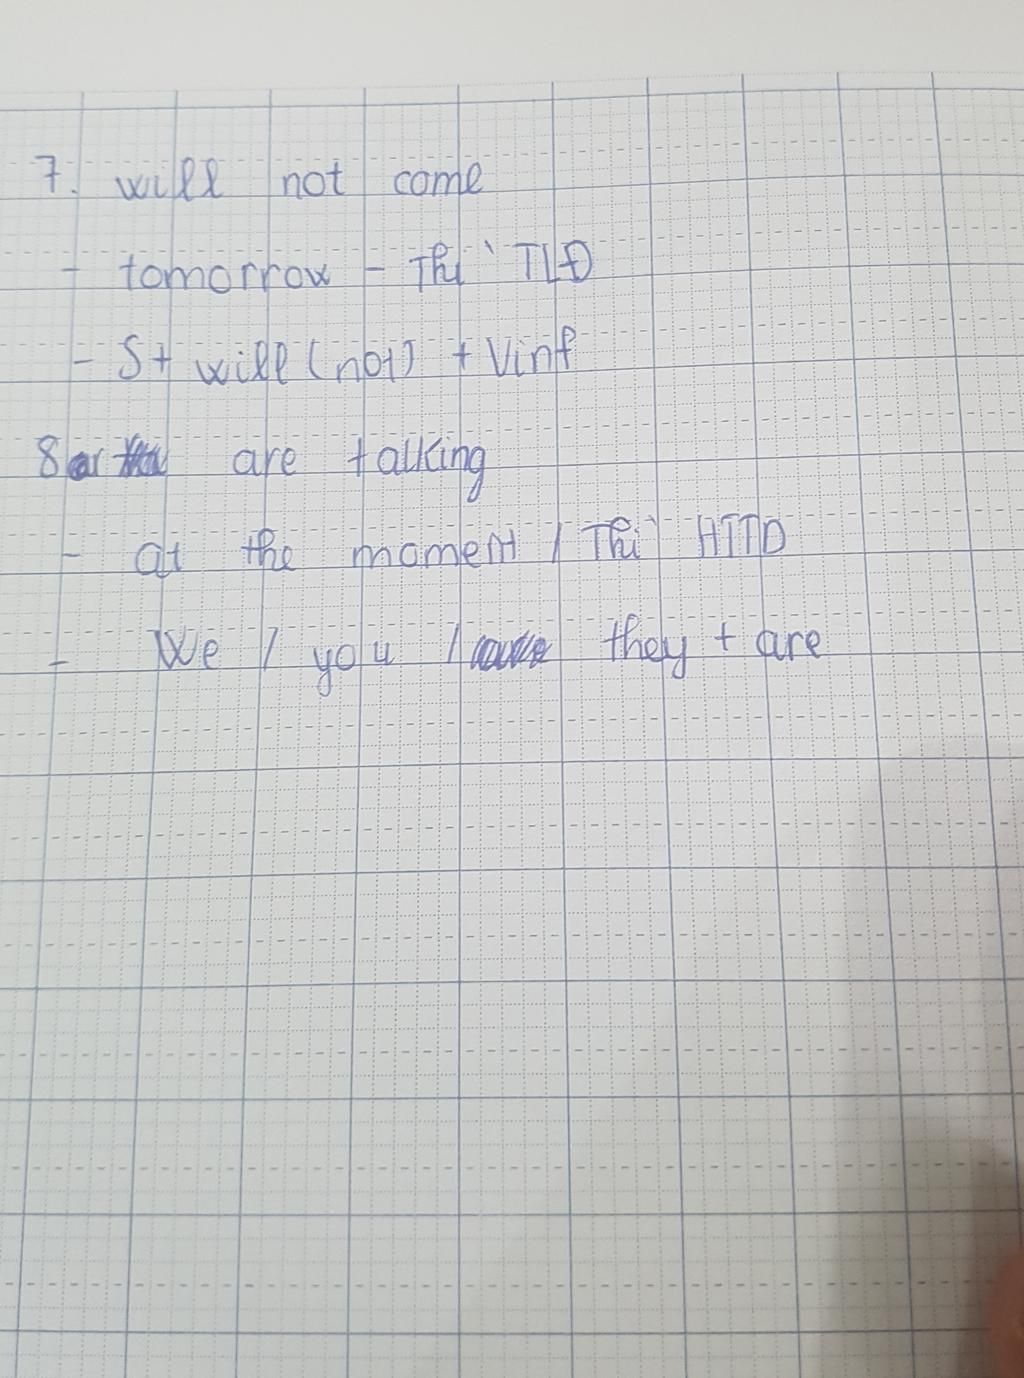 7. will not come
- tomorrow - Thì TLĐ
- S + will (not) + Vinf
8 are talking
- at the moment / Thì HTTD
- We / you / they + are